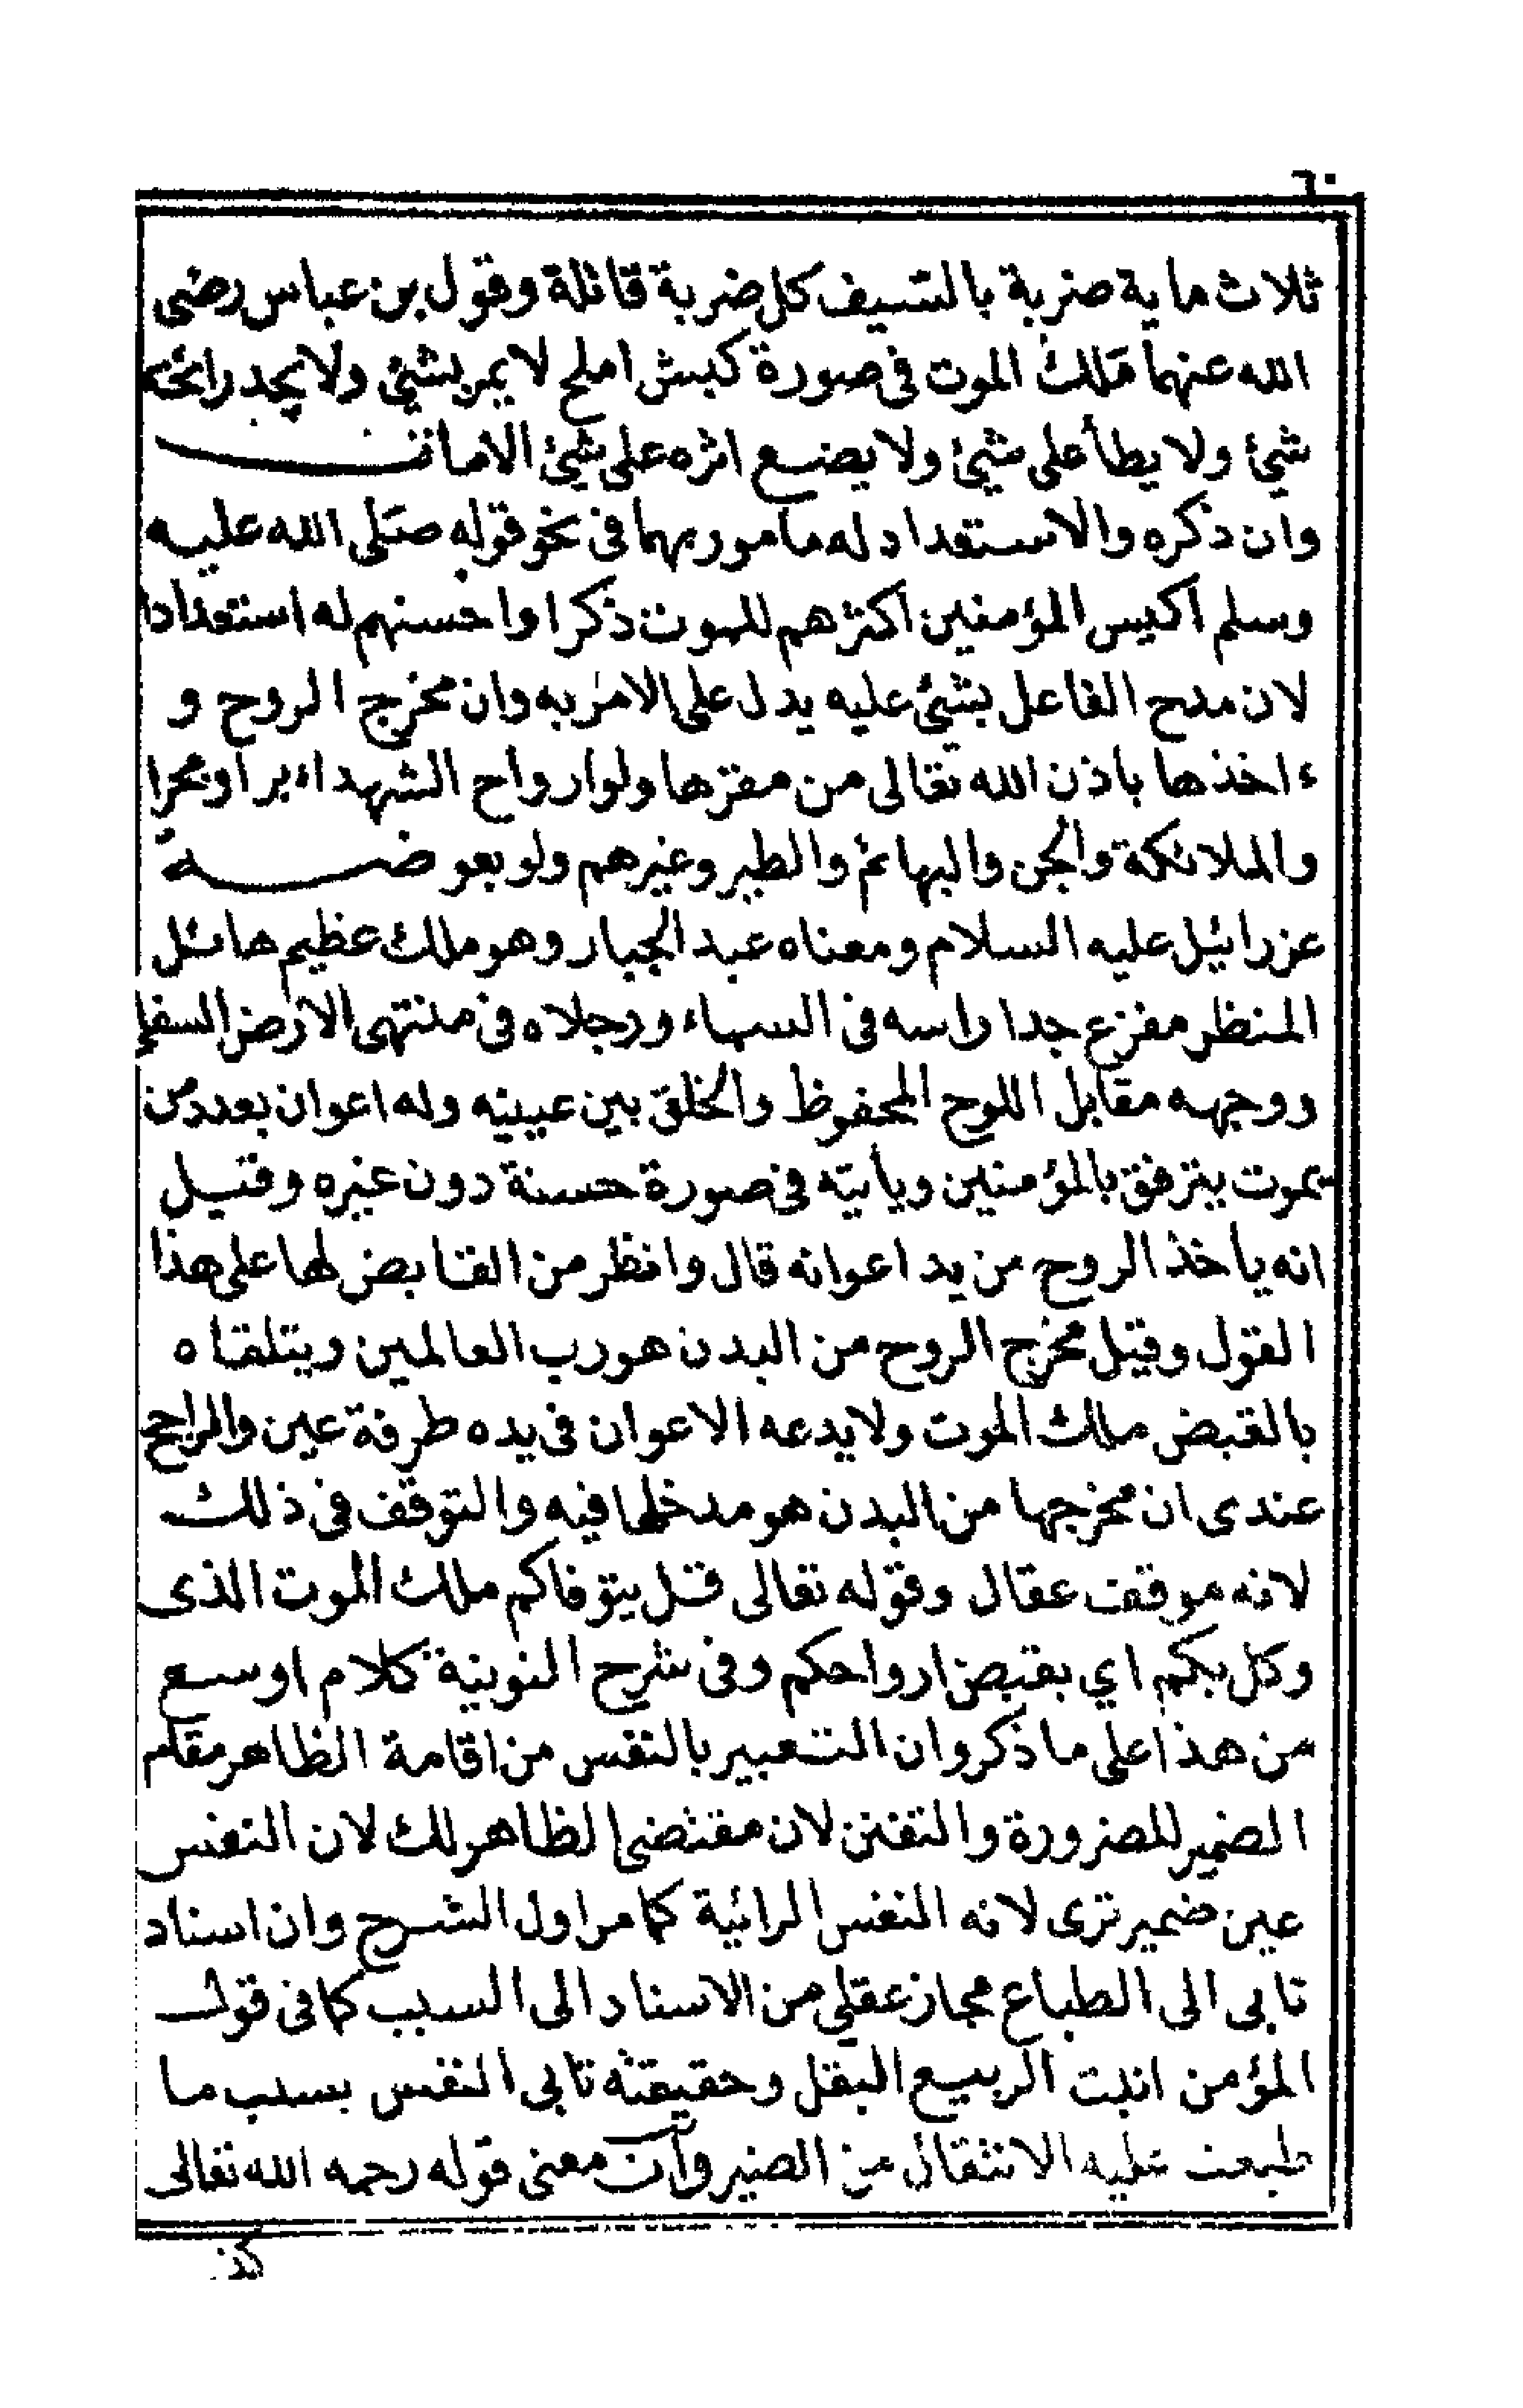 ٦٠
ثلاث ماية ضربة بالسيف كل ضربة قاتلة وقول بن عباس رضى
الله عنهما مَلك الموت فى صورة كبش املح لا يمر بشئ ولا يجد رائحته
شئ ولا يطأ على شئ ولا يضع اثره على شئ الا مات
وان ذكره والاستعداد له مامور بهما فى نحو قوله صَلى الله عليه
وسلم اكيس المؤمنين اكثرهم للموت ذكرا واحسنهم له استعدادا
لان مدح الفاعل بشئ عليه يدل على الامر به وان مخرج الروح و
ءاخذها باذن الله تعالى من مقرها ولو ارواح الشهداء برا وبحرا
والملائكة والجن والبهائم والطير وغيرهم ولو بعوضة
عزرائيل عليه السلام ومعناه عبد الجبار وهو ملك عظيم هائل
المنظر مفزع جدا راسه فى السماء ورجلاه فى منتهى الارض السفلى
ووجهه مقابل اللوح المحفوظ والخلق بين عينيه وله اعوان بعدد من
يموت يترفق بالمؤمنين ويأتيه فى صورة حسنة دون غيره وقيل
انه يأخذ الروح من يد اعوانه قال وانظر من القابض لها على هذا
القول وقيل مخرج الروح من البدن هو رب العالمين ويتلقاه
بالقبض ملك الموت ولا يدعه الاعوان فى يده طرفة عين والراجح
عندى ان مخرجها من البدن هو مدخلها فيه والتوقف فى ذلك
لانه موقف عقال وقوله تعالى قل يتوفاكم ملك الموت الذى
وكل بكم اي بقبض ارواحكم وفى شرح النونية كلام اوسع
من هذا على ما ذكر وان التعبير بالنفس من اقامة الظاهر مقام
الضمير للضرورة والتفنن لان مقتضى الظاهر لك لان النفس
عين ضمير ترى لانه النفس الرائية كما مر اول الشرح وان اسناد
تابى الى الطباع مجاز عقلي من الاسناد الى السبب كما فى قول
المؤمن انبت الربيع البقل وحقيقته تابى النفس بسبب ما
طبعت عليه الانتقال من الضير وأن معنى قوله رحمه الله تعالى